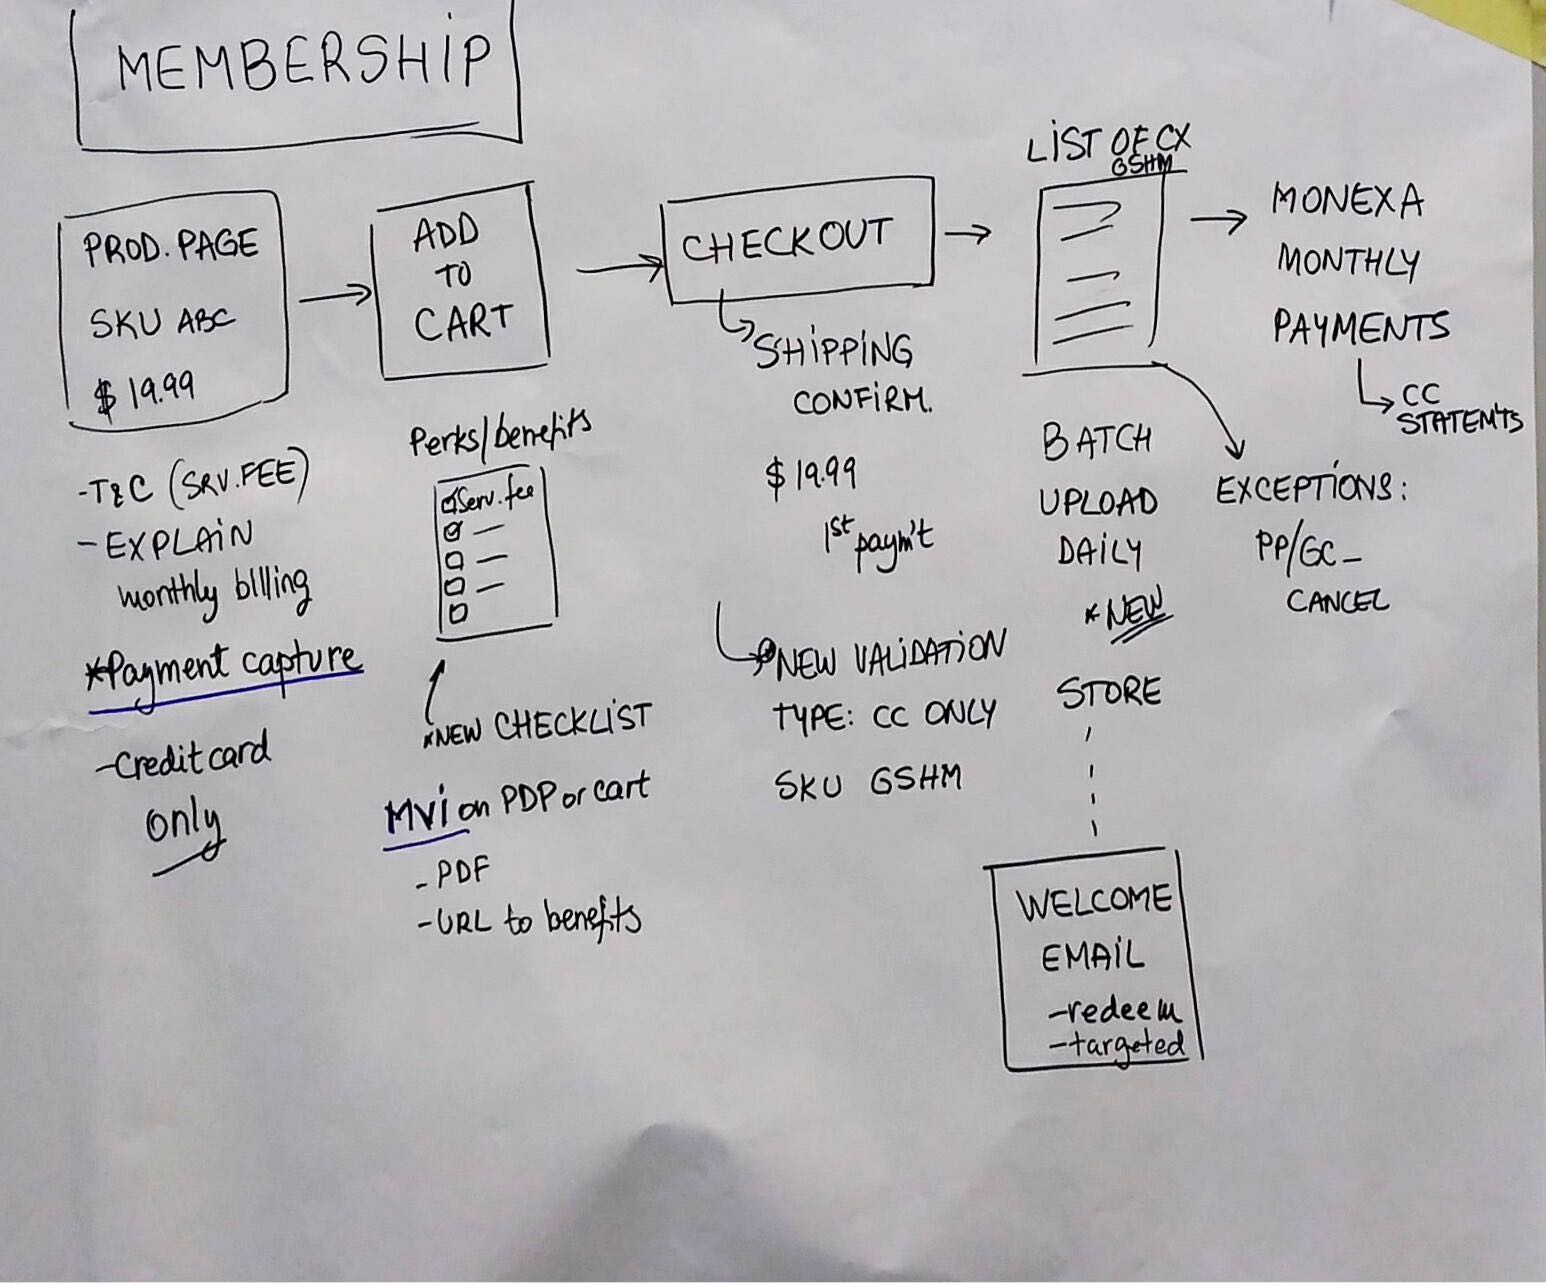 MEMBERSHIP
PROD. PAGE
SKU ABC
$ 19.99
- T&C (SRV. FEE)
- EXPLAIN
monthly billing
*Payment capture
- Credit card
only
ADD
TO
CART
Perks/benefits
Serv. fee
*NEW CHECKLIST
MVI on PDP or cart
- PDF
- URL to benefits
CHECKOUT
SHIPPING
CONFIRM.
$ 19.99
1st paym't
NEW VALIDATION
TYPE: CC ONLY
SKU GSHM
LIST OF CX
GSHM
BATCH
UPLOAD
DAILY
* NEW
STORE
WELCOME
EMAIL
- redeem
- targeted
MONEXA
MONTHLY
PAYMENTS
CC
STATEM'TS
EXCEPTIONS:
PP/GC -
CANCEL